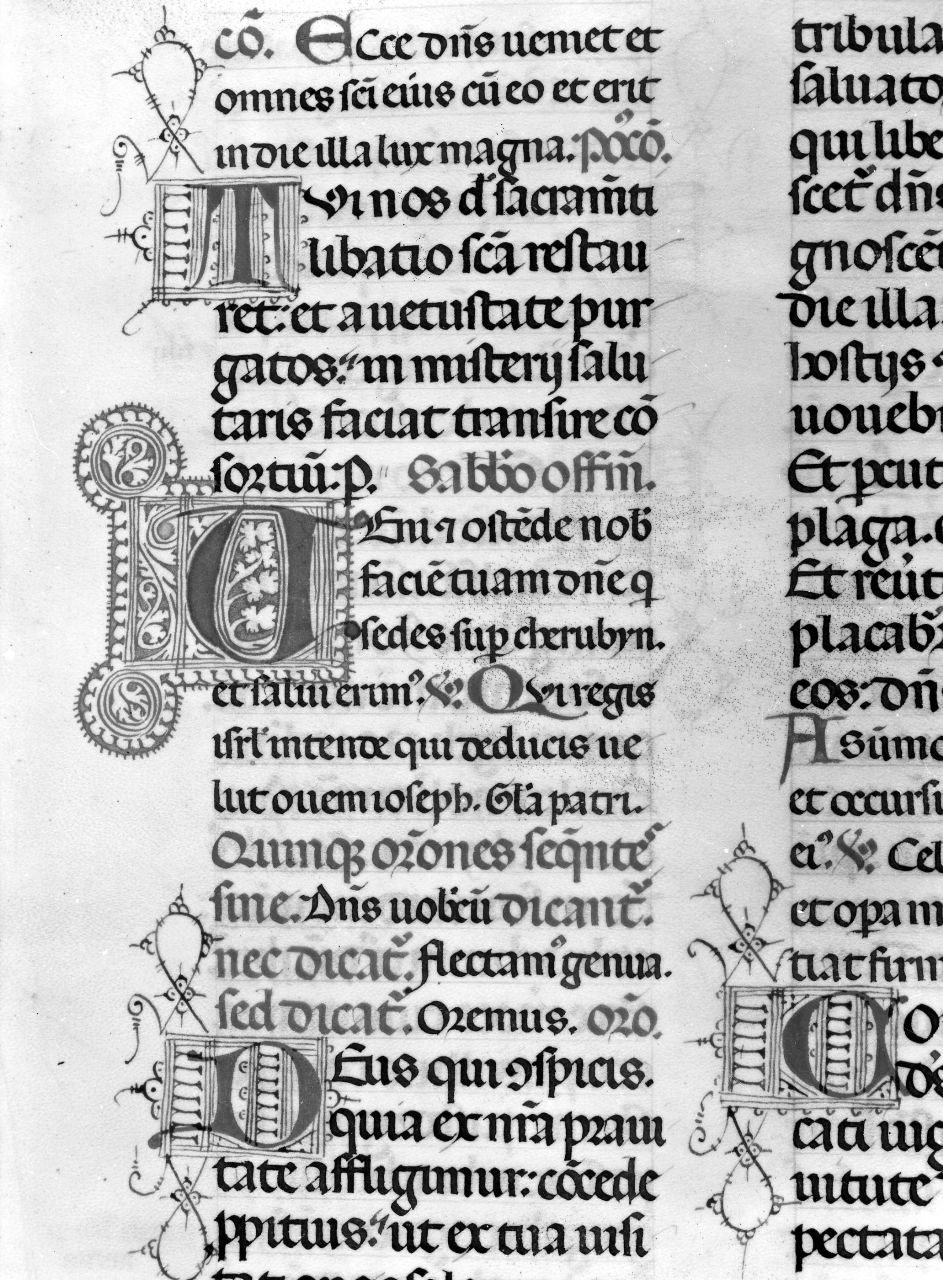 cō. Ecce dn̄s ueniet et
omnes sc̄i eius cū eo et erit
in die illa lux magna: Pꝰcō.
TVi nos d̄s sacram̄ti
libatio sc̄a restau
ret: et a uetustate pur
gatos: in misterij salu
taris faciat transire cō
sortiū: P. Sabb̄o offm̄.
VEni ⁊ ostēde nob̄
faciē tuam dn̄e q
sedes sup cherubyn.
et salui erimꝰ. ℣. Qvi regis
isrl̄ intende qui deducis ue
lut ouem ioseph. Gl̄a patri.
Quinqꝫ or̄ones seq̄nte᷒
sine. Dn̄s uob̄cū dicant᷒.
nec dicat᷒. flectamꝰ genua.
sed dicat᷒. Oremus. or̄o.
DEus qui ꝯspicis.
quia ex nr̄a praui
tate affligimur: cōcede
ꝓpitius: ut ex tua uisi
tribula
saluato
qui libe
scet᷒ dn̄s
gnoscēt
die illa.
hostijs
uouebi
Et ꝑcut
plaga.
Et reūt
placab᷒
eos: dn̄
A sūmo
et occursu
eiꝰ. ℣. Cel
et opa m
tiat firm
COn
ds̄
cati iug
uitute
pectata